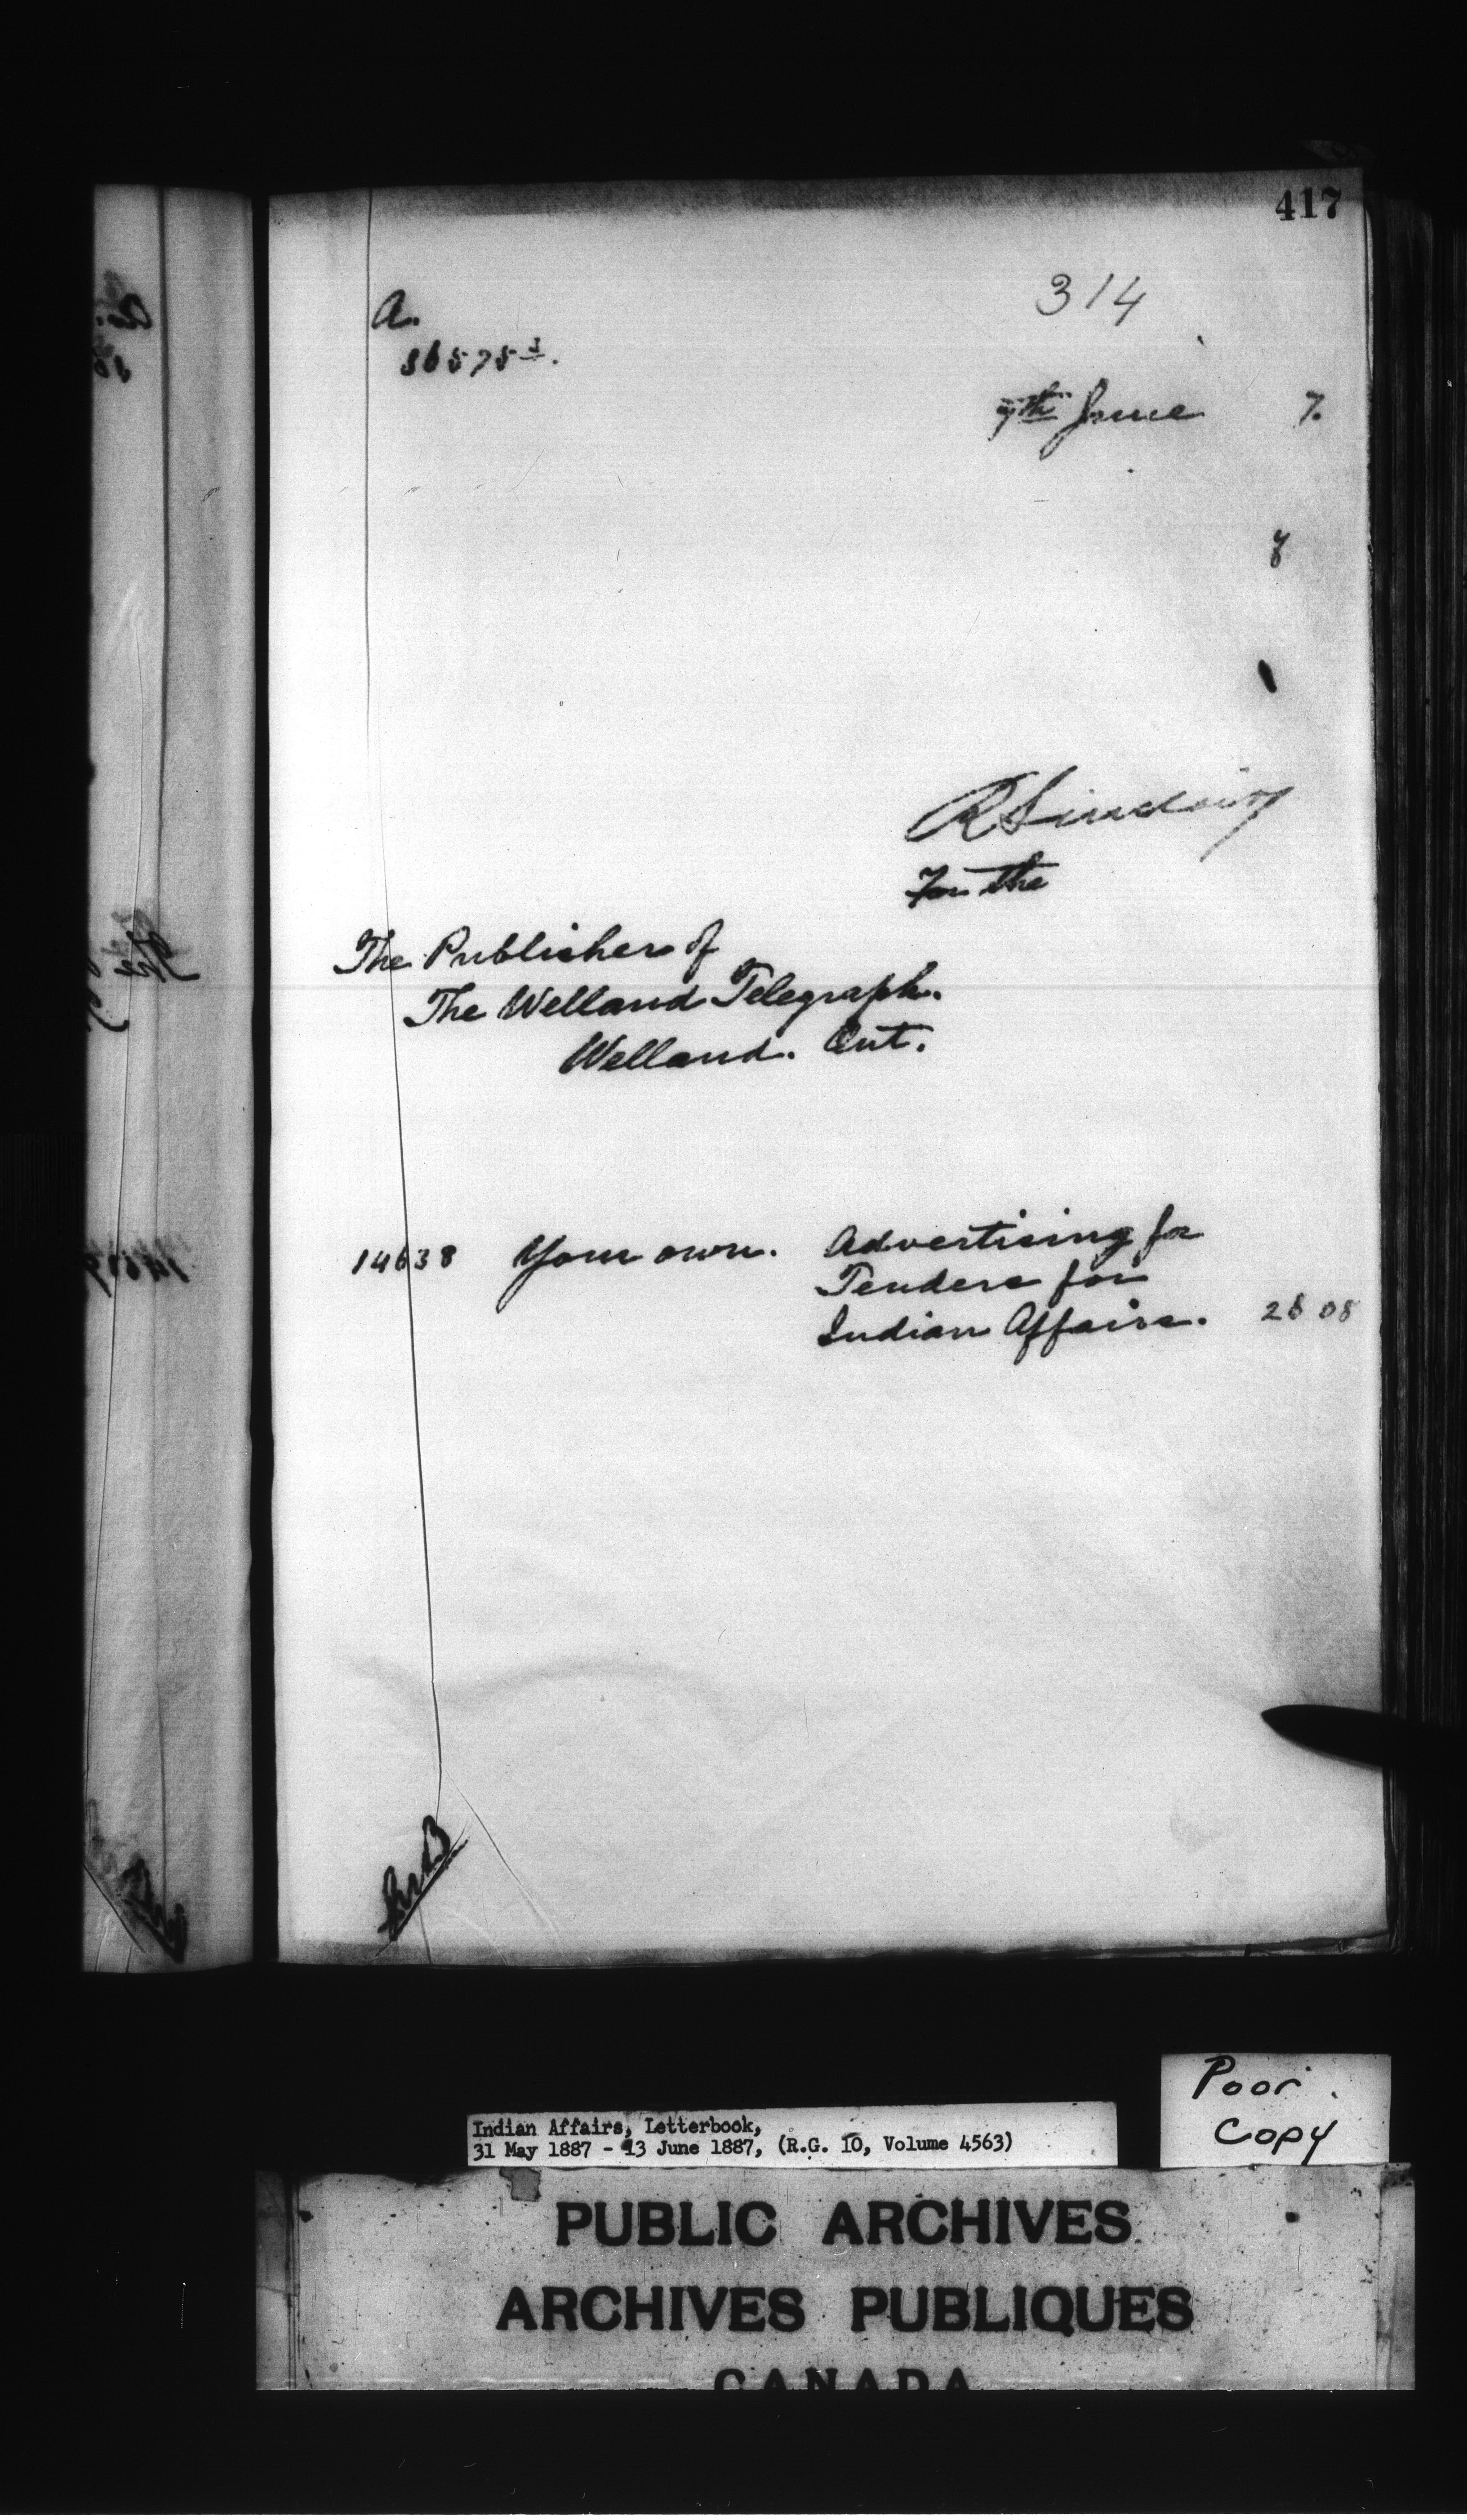 417
314
A.
36575⅓.
7th June 7.
y
R Sinclair
For the
The Publisher of
The Welland Telegraph.
Welland. Ont.
14638 Your own. Advertising for
Tenders for
Indian Affairs. 26 08
Poor.
Copy
Indian Affairs, Letterbook,
31 May 1887 - 13 June 1887, (R.G. 10, Volume 4563)
PUBLIC ARCHIVES
ARCHIVES PUBLIQUES
CANADA